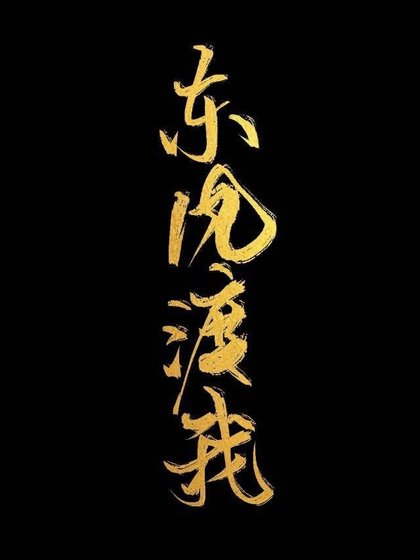 东风渡我